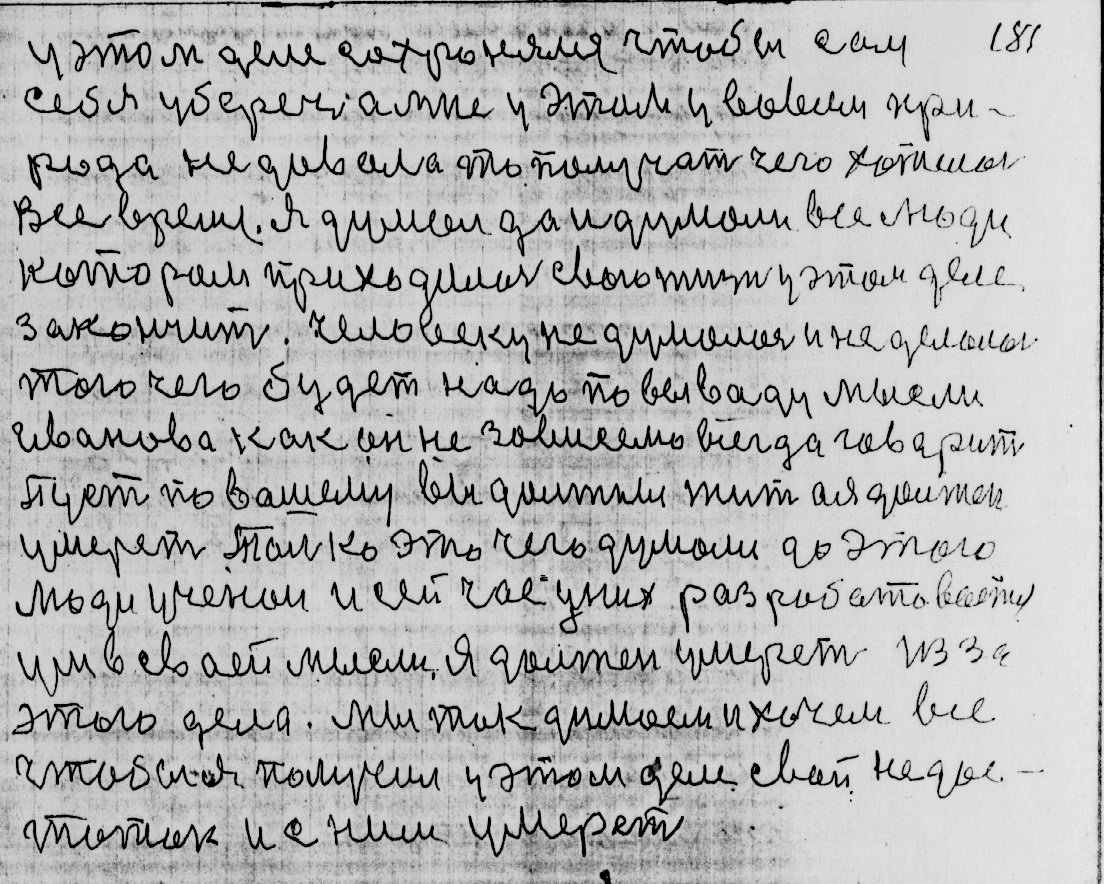 у этом деле сохронялся чтобы сам 181
себя уберечь а мне у этим у вовсем при-
рода не довала то получат чего хотелос
Все время. Я думал да и думоли все люди
которам приходилос свою жизн у этом деле
закончит. Человеку не думолос и не делолос
того чего будет надо по вываду мысли
Иванова как он не зависемо всегда говарит
Пуст по вашему вы должны жит а я должен
умерет Толко это чего думоли до этого
люди ученои и сей час у них разработовается
ум в сваей мысли. Я должен умерет из за
этого дела. Мы так думаем и хочем все
чтобы я получил у этом деле свой недос-
тоток и с ним умерет